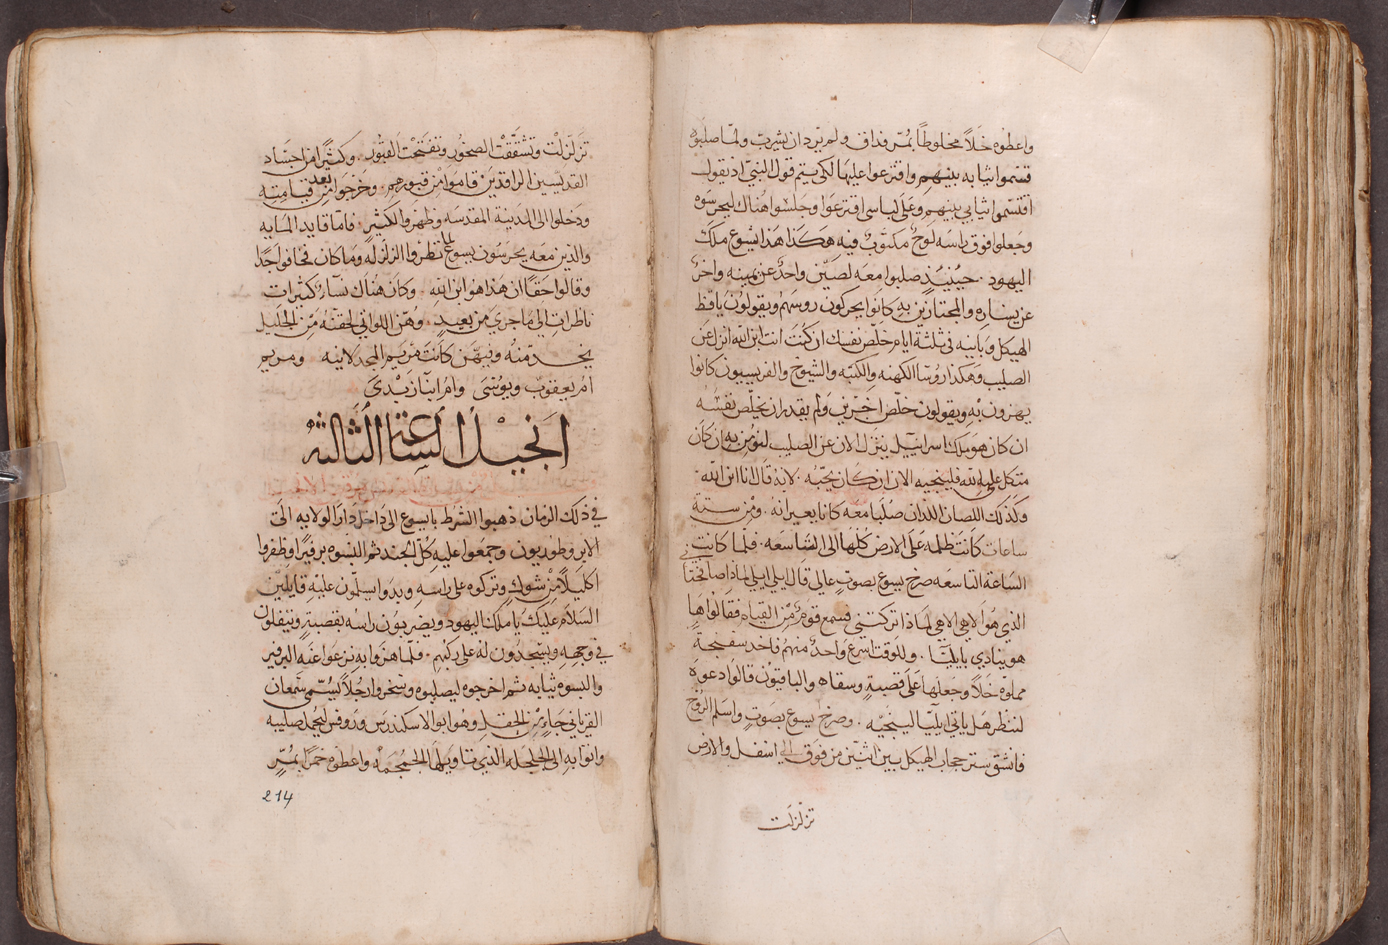 واعطوه خلاً مخلوطاً بمر فداق ولم يرد ان يشرب ولما صلبوه
قسموا ثيابه بينهم واقترعوا عليها لكي يتم قول النبي اذ يقول
اقتسموا ثيابي بينهم وعلى لباسي اقترعوا وجلسوا هناك ليحرسوه
وجعلوا فوق راسه لوح مكتوب فيه هكذا هذا يسوع ملك
اليهود . حينيذٍ صلبوا معه لصين واحد عن يمينه واخر
عن يساره والمجتازين به كانوا يحركون روسهم ويقولون ياناقظ
الهيكل وبانيه في ثلثة ايام خلص نفسك ان كنت انت ابن الله انزل عن
الصليب وهكذا روسا الكهنه والكتبه والشيوخ والفريسيون كانوا
يهزون به ويقولون خلص اخرين ولم يقدر ان يخلص نفسه
ان كان هو ملك اسراييل ينزل الان عن الصليب لنومن به ان كان
متكل على الله فلينجيه الان ان كان يحبه . لانه قال انا ابن الله
وكذلك اللصان اللذان صلبا معه كانا يعيرانه . ومن ستة
ساعات كانت ظلمه على الارض كلها الى التاسعه . فلما كانت
الساعة التاسعه صرخ يسوع بصوتٍ عالي قال ايلي ايلي لماذا صافختاني
الذي هو الاهي الاهي لماذا تركتني فسمع قوم من القيام فقالوا ها
هو ينادي يا ايليا . وللوقت اسرع واحد منهم فاخد سفنجة
مملوة خلاً وجعلها على قصبةٍ وسقاه والباقون قالوا دعوه
لننظر هل ياتي ايليا لينجيه . وصرخ يسوع بصوتٍ واسلم الروح
فانشق ستر حجاب الهيكل بين اثنين من فوق الى اسفل والارض
تزلزلت
تزلزلت وتشققت الصخور وتفتحت القبور . وكثيرًا من اجساد
القديسين الراقدين قاموا من قبورهم . وخرجوا من بعد قيامته
ودخلوا الى المدينة المقدسه وظهروا لكثيرٍ . فاما قايد المايه
والذين معه يحرسون يسوع لما نظروا الزلزله وما كان فخافوا جدًا
وقالوا حقاً ان هذا هو ابن الله . وكان هناك نساء كثيرات
ناظرات الى ما جرى من بعيدٍ . وهن اللواتي لحقنه من الجليل
يخدمنه وبينهن كانت مريم المجدلانيه ومريم
ام يعقوب ويوسى وام ابناء زبدى
انجيل الساعة الثالثة
في ذلك الزمان ذهبوا الشرط بايسوع الى داخل دار الولايه الى
الابروطوديون وجمعوا عليه كل الجند ثم البسوه برفيرًا وظفروا
اكليلاً من شوكٍ وتركوه على راسه وبدوا يسلمون عليه قايلين
السلام عليك يا ملك اليهود ويضربون راسه بقصبةٍ ويتفلون
في وجهه ويسجدون له على ركبهم . فلما هزوا به نزعوا عنه البرفير
والبسوه ثيابه ثم اخرجوه ليصلبوه وسخروا رجلاً يسمى سمعان
القرياني جاي من الحقل وهو ابو الاسكندرس وروفس ليحمل صليبه
واتوا به الى الجلجله الذي تاويلها الجمجمه واعطوه خمرًا بمرٍ
214